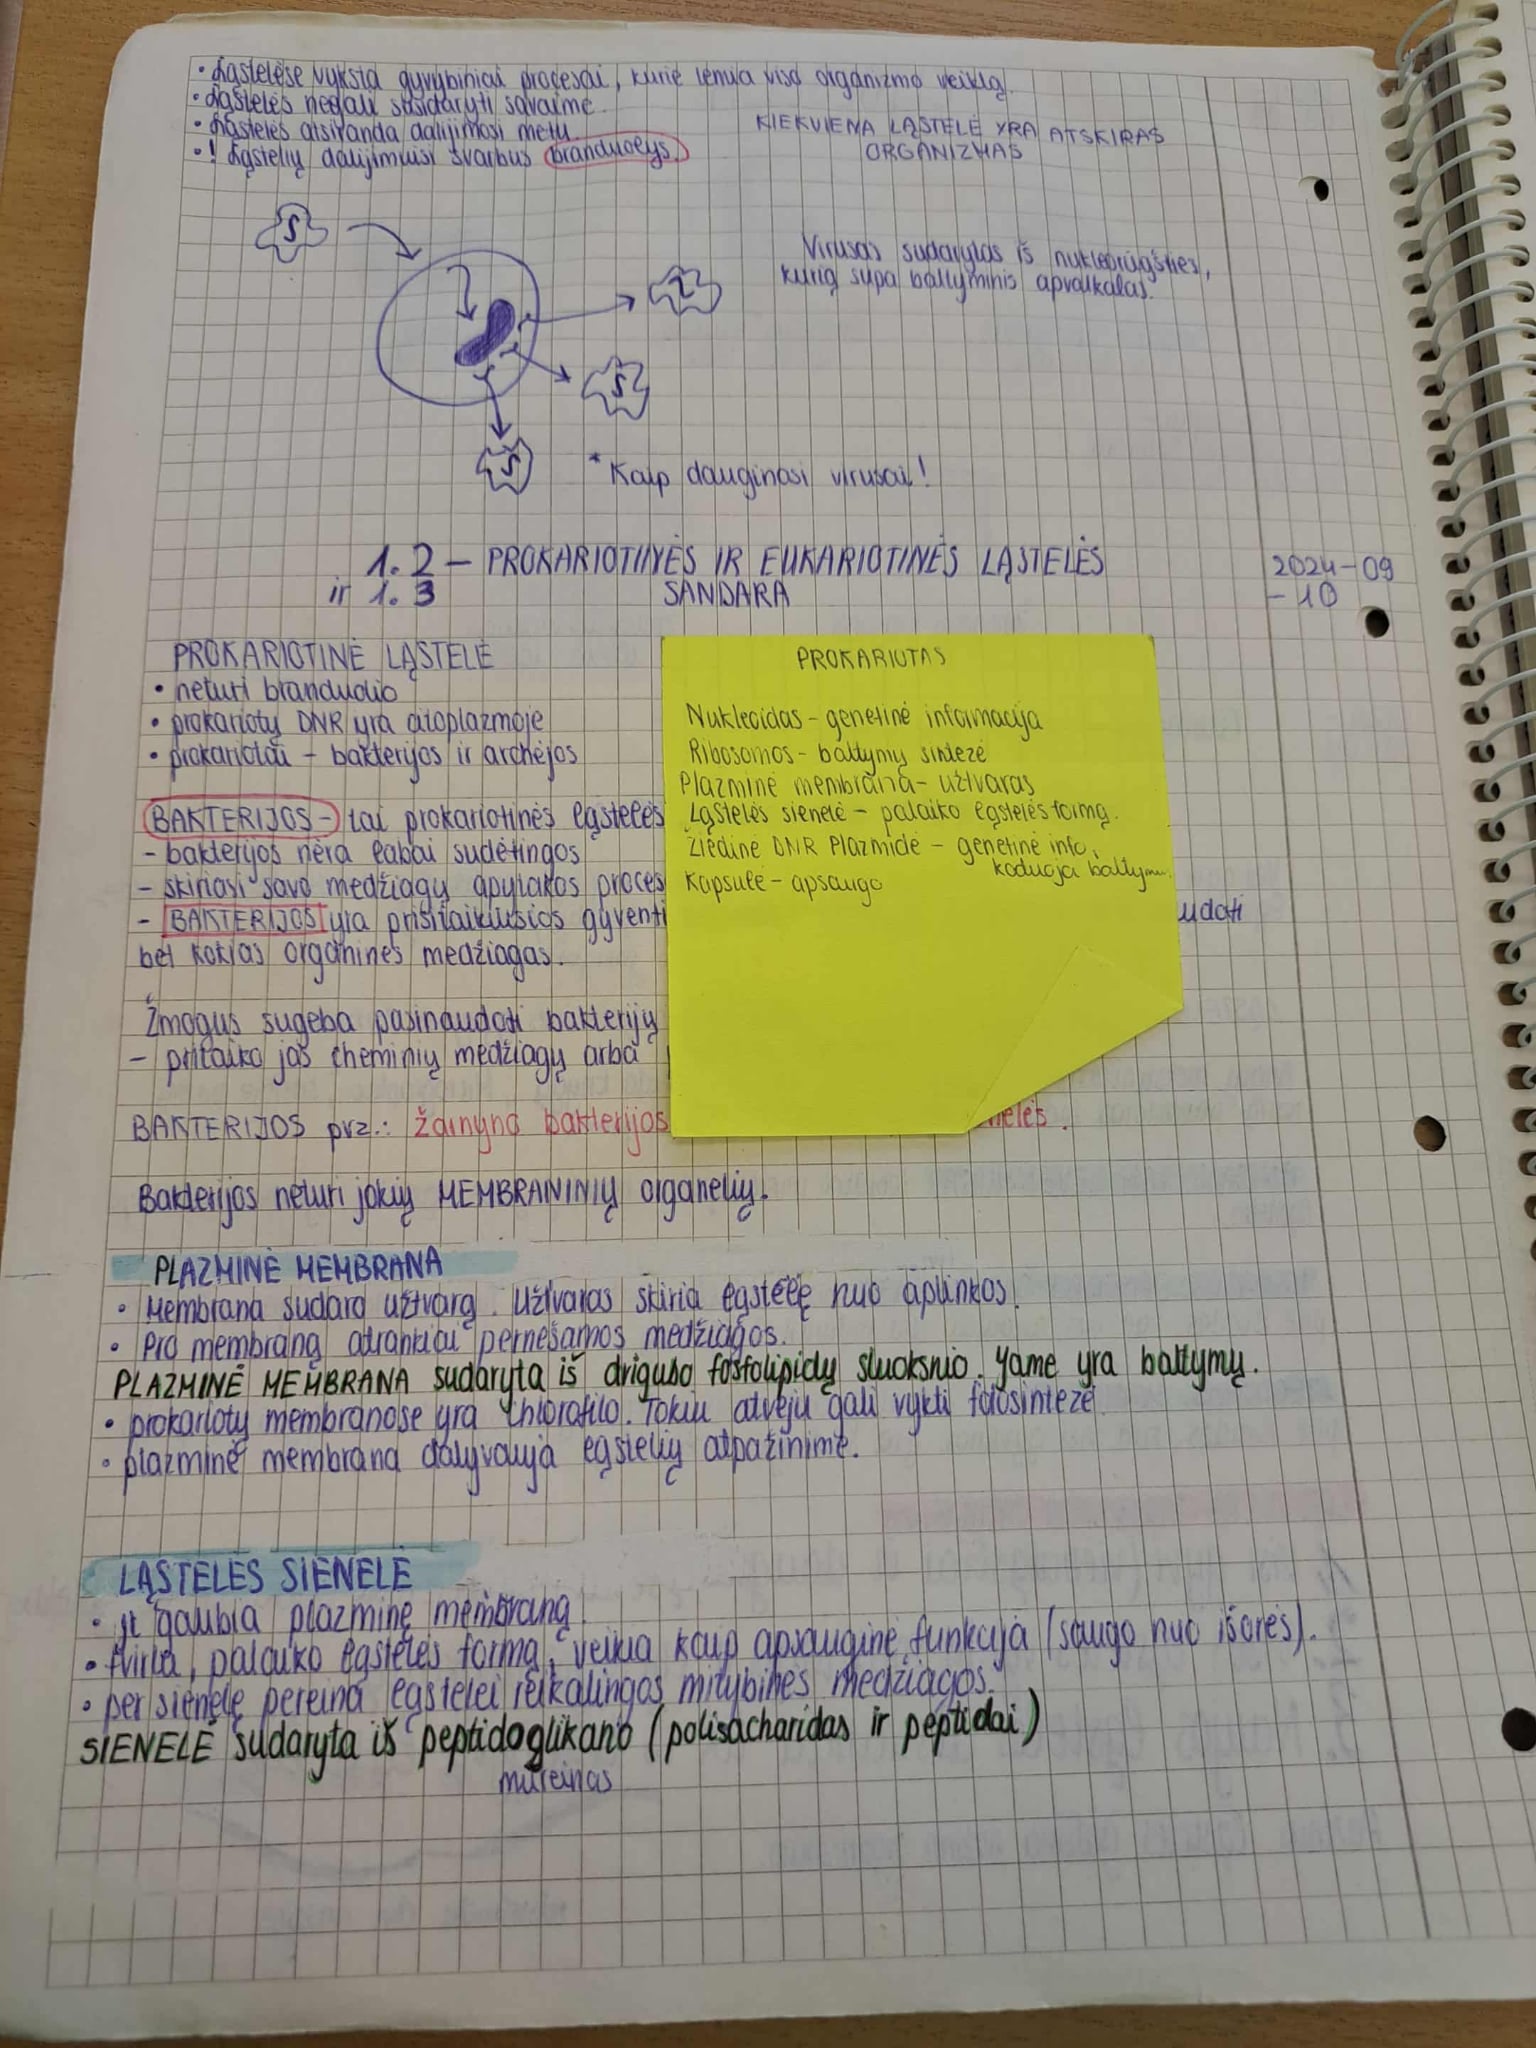 • Ląstelėse vyksta gyvybiniai procesai, kurie lemia viso organizmo veiklą.
• Ląstelės negali susidaryti savaime.
• Ląstelės atsiranda dalijimosi metu.
• ! Ląstelių dalijimuisi svarbus branduolys.
KIEKVIENA LĄSTELĖ YRA ATSKIRAS
ORGANIZMAS
Virusas sudarytas iš nukleorūgšties,
kurią supa baltyminis apvalkalas.
* Kaip dauginasi virusai!
1.2 – PROKARIOTINĖS IR EUKARIOTINĖS LĄSTELĖS
ir 1.3 SANDARA
2024-09
-10
PROKARIOTINĖ LĄSTELĖ
• neturi branduolio
• prokariotų DNR yra citoplazmoje
• prokariotai – bakterijos ir archėjos
BAKTERIJOS – tai prokariotinės ląstelės
- bakterijos nėra labai sudėtingos
- skiriasi savo medžiagų apykaitos proces
- BAKTERIJOS yra prisitaikiusios gyventi udoti
bet kokias organines medžiagas.
Žmogus sugeba pasinaudoti bakterijų
– pritaiko jas cheminių medžiagų arba
BAKTERIJOS pvz.: žarnyno bakterijos nelės.
Bakterijos neturi jokių MEMBRANINIŲ organelių.
PROKARIOTAS
Nukleoidas – genetinė informacija
Ribosomos – baltymų sintezė
Plazminė membrana – užtvaras
Ląstelės sienelė – palaiko ląstelės formą.
Žiedinė DNR Plazmidė – genetinė info,
koduoja baltymu.
Kapsulė – apsauga
PLAZMINĖ MEMBRANA
• Membrana sudaro užtvarą. Užtvaras skiria ląstelę nuo aplinkos.
• Pro membraną atrankiai pernešamos medžiagos.
PLAZMINĖ MEMBRANA sudaryta iš dviguso fosfolipidų sluoksnio. Jame yra baltymų.
• prokariotų membranose yra chlorofilo. Tokiu atveju gali vykti fotosintezė
• plazminė membrana dalyvauja ląstelių atpažinime.
LĄSTELĖS SIENELĖ
• ji gaubia plazminę membraną.
• tvirta, palaiko ląstelės formą, veikia kaip apsauginė funkcija (saugo nuo išorės).
• per sienelę pereina ląstelei reikalingos mitybinės medžiagos.
SIENELĖ sudaryta iš peptidoglikano (polisacharidas ir peptidai)
mureinas